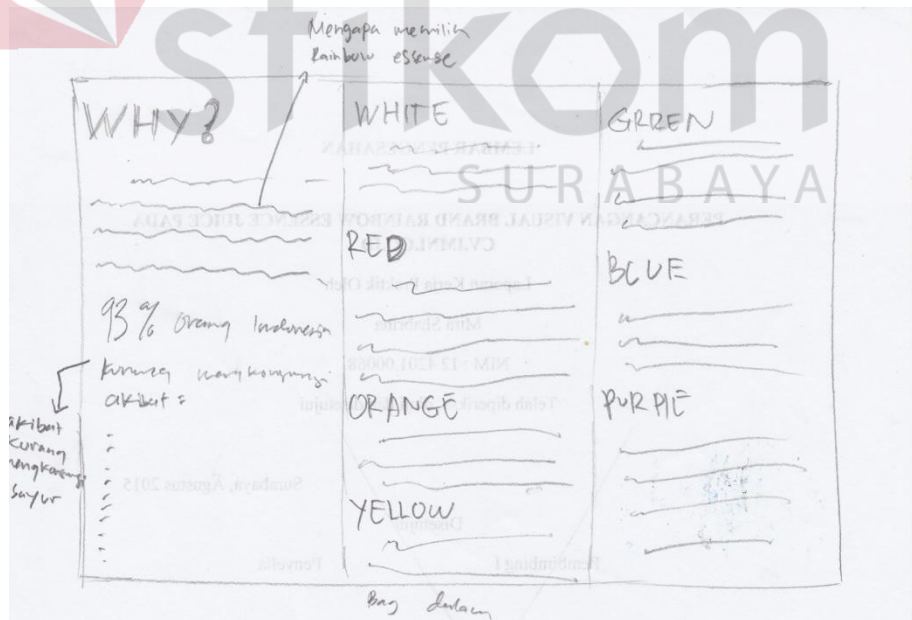 stikom
SURABAYA
Mengapa memilih
Rainbow essense
WHY?
93% orang Indonesia
kurang mengkonsumsi
akibat :
akibat
kurang
mengkonsumsi
sayur
WHITE
RED
ORANGE
YELLOW
GREEN
BLUE
PURPLE
Bag dalam